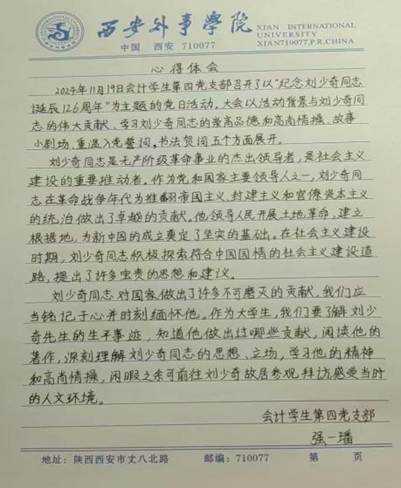 西安外事学院
XI'AN INTERNATIONAL
UNIVERSITY
中国 西安 710077
XIAN710077,P.R.CHINA
心得体会
2024年11月19日会计学生第四党支部召开了以“纪念刘少奇同志
诞辰126周年”为主题的党日活动。大会以活动背景与刘少奇同
志的伟大贡献、学习刘少奇同志的崇高品德和高尚情操、故事
小剧场、重温入党誓词、书法贺词五个方面展开。
刘少奇同志是无产阶级革命事业的杰出领导者,是社会主义
建设的重要推动者。作为党和国家主要领导人之一,刘少奇同
志在革命战争年代为推翻帝国主义、封建主义和官僚资本主义
的统治做出了卓越的贡献。他领导人民开展土地革命,建立
根据地,为新中国的成立奠定了坚实的基础。在社会主义建设
时期,刘少奇同志积极探索符合中国国情的社会主义建设道
路,提出了许多宝贵的思想和建议。
刘少奇同志对国家做出了许多不可磨灭的贡献,我们应
当铭记于心并时刻缅怀他。作为大学生,我们要了解刘少
奇先生的生平事迹,知道他做出过哪些贡献,阅读他的
著作,深刻理解刘少奇同志的思想、立场,学习他的精神
和高尚情操,闲暇之余可前往刘少奇故居参观拜访感受当时
的人文环境。
会计学生第四党支部
强一璠
地址:陕西西安市丈八北路 邮编:710077 第 页